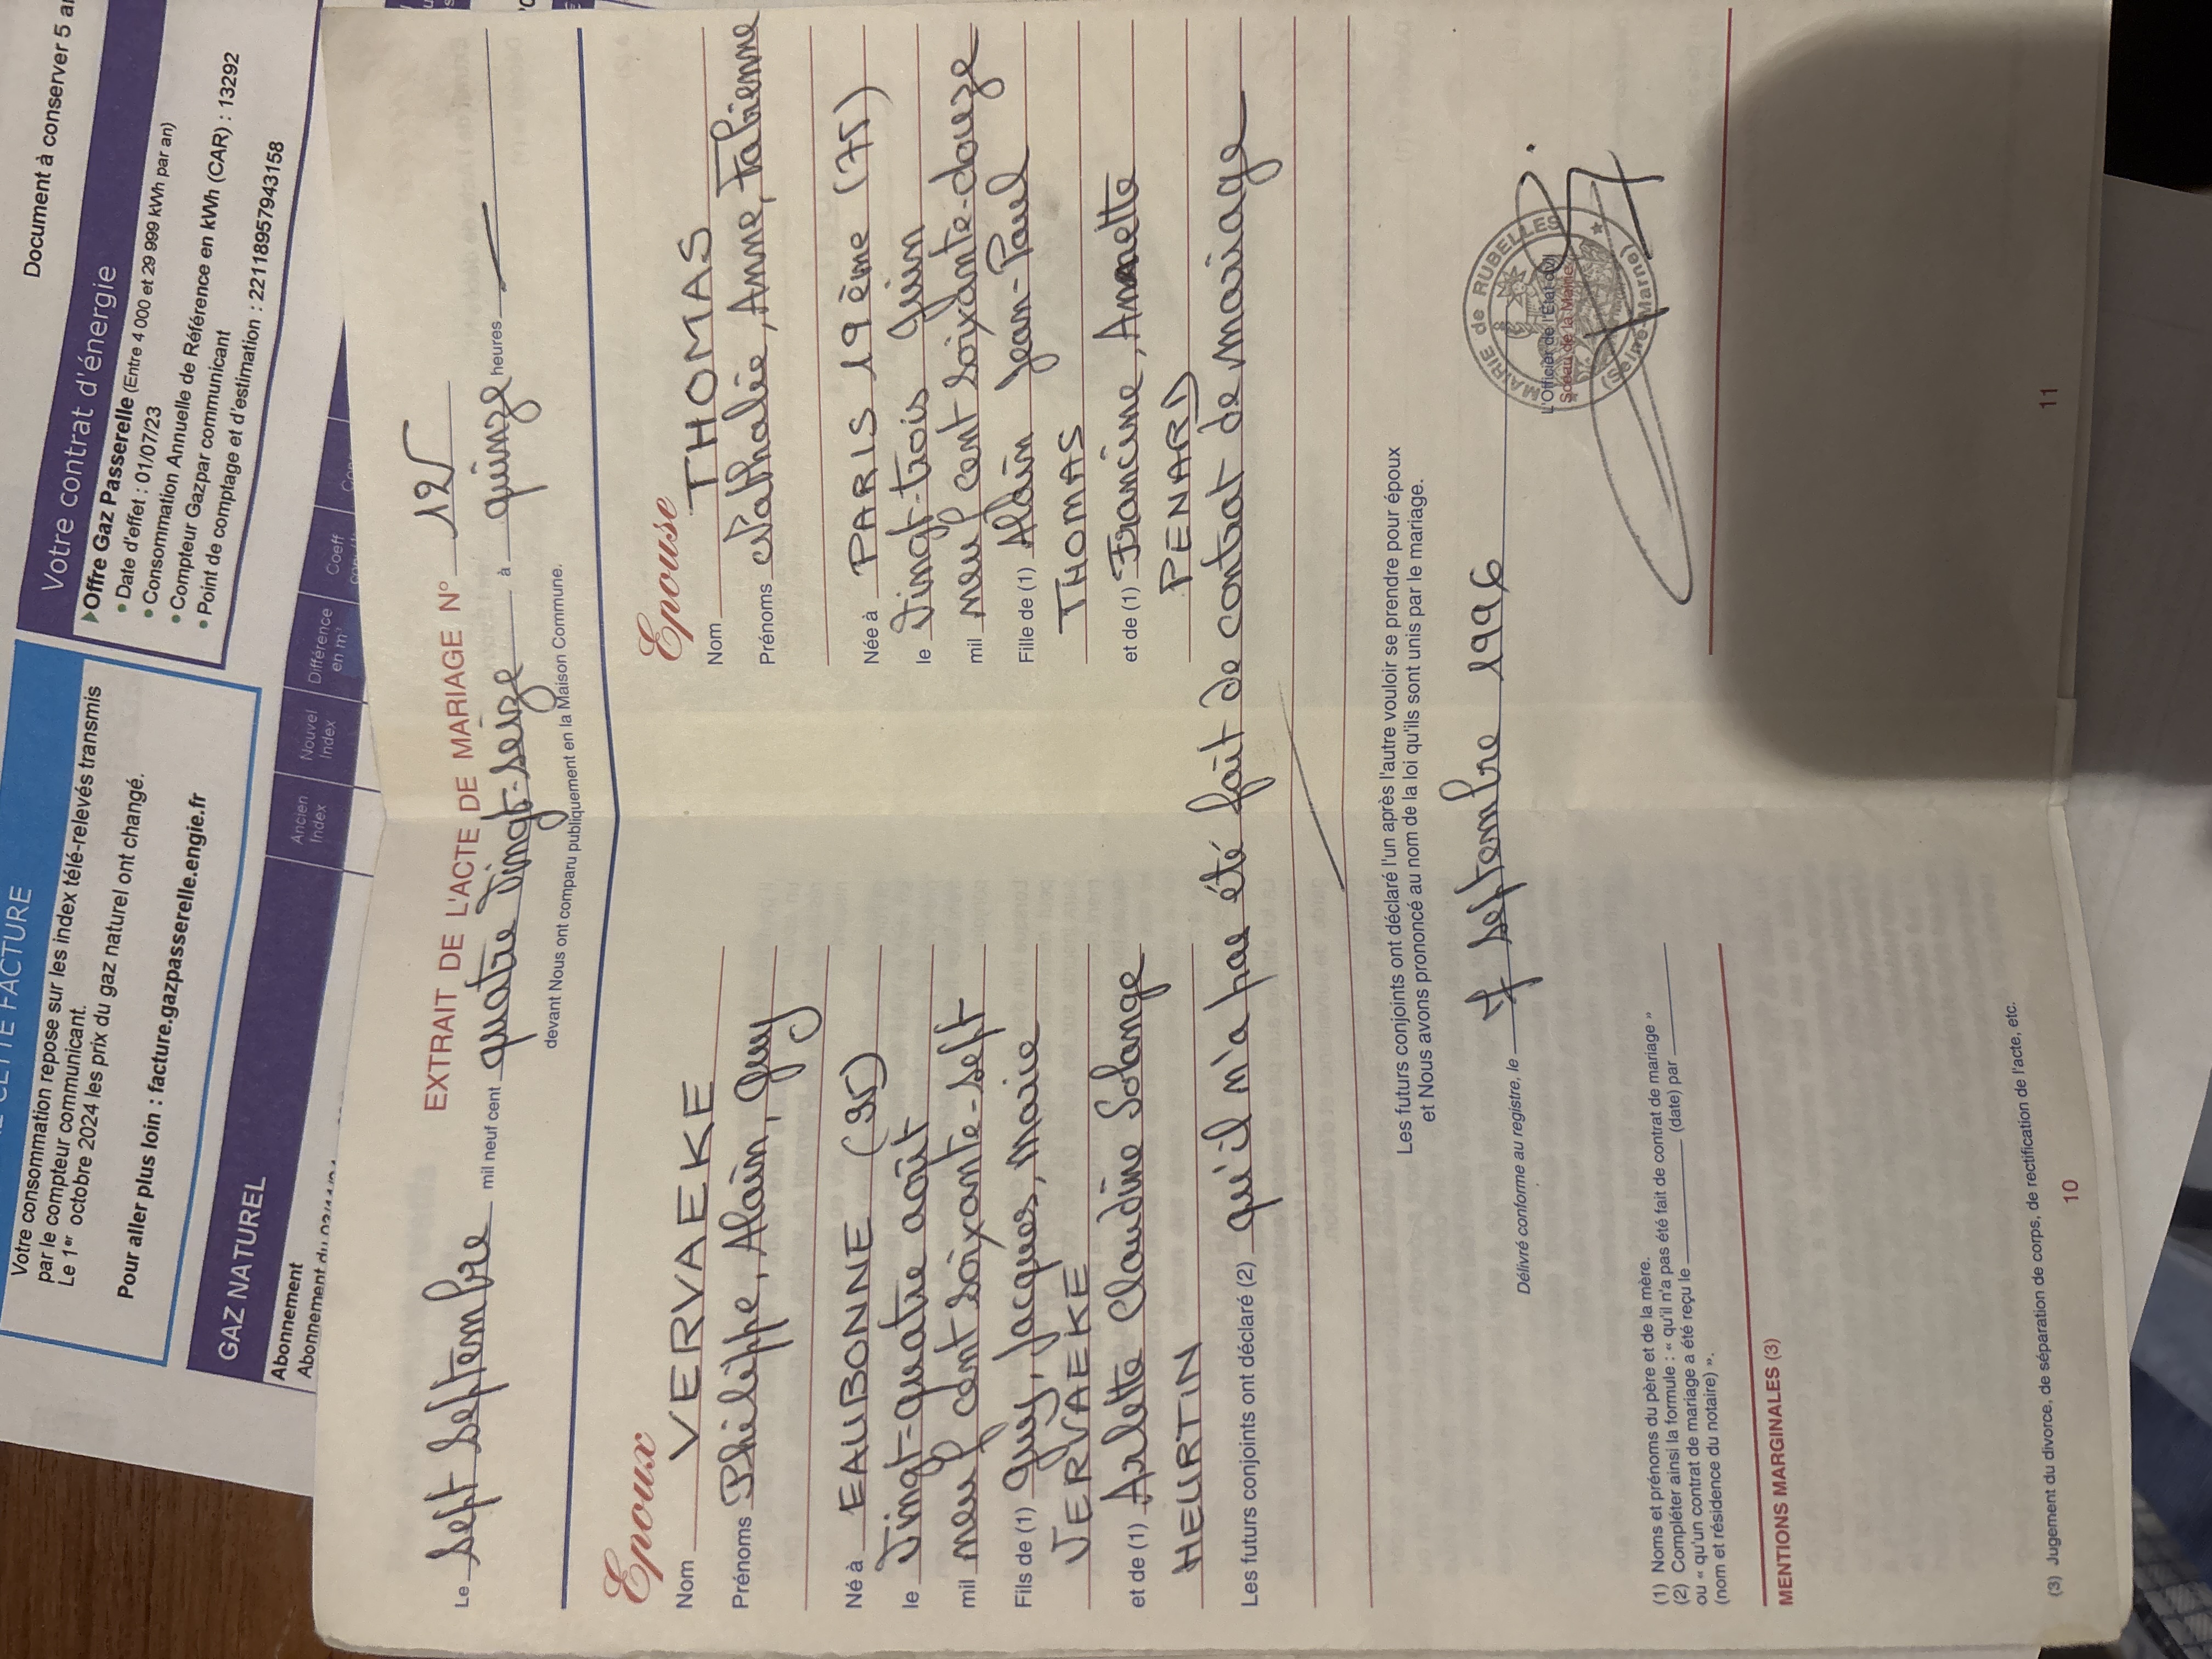 CETTE FACTURE
Votre consommation repose sur les index télé-relevés transmis
par le compteur communicant.
Le 1er octobre 2024 les prix du gaz naturel ont changé.
Pour aller plus loin : facture.gazpasserelle.engie.fr
Document à conserver 5
Votre contrat d'énergie
Offre Gaz Passerelle (Entre 4 000 et 29 999 kWh par an)
• Date d'effet : 01/07/23
• Consommation Annuelle de Référence en kWh (CAR) : 13292
• Compteur Gazpar communicant
• Point de comptage et d'estimation : 22118957943158
GAZ NATUREL
Ancien Index
Nouvel Index
Différence en m³
Coeff
Abonnement
Abonnement du
EXTRAIT DE L'ACTE DE MARIAGE N° 12
Le sept septembre mil neuf cent quatre vingt-seize à quinze heures
devant Nous ont comparu publiquement en la Maison Commune.
Epoux
Nom VERVAEKE
Prénoms Philippe, Alain, Guy
Né à EAUBONNE (95)
le vingt-quatre août
mil neuf cent soixante-sept
Fils de (1) Guy, Jacques, Marie
VERVAEKE
et de (1) Arlette Claudine Solange
HEURTIN
Epouse
Nom THOMAS
Prénoms Nathalie, Anne, Fabienne
Née à PARIS 19ème (75)
le vingt-trois Juin
mil neuf cent soixante-douze
Fille de (1) Alain Jean-Paul
THOMAS
et de (1) Francine, Annette
PENARD
Les futurs conjoints ont déclaré (2) qu'il n'a pas été fait de contrat de mariage
Les futurs conjoints ont déclaré l'un après l'autre vouloir se prendre pour époux
et Nous avons prononcé au nom de la loi qu'ils sont unis par le mariage.
Délivré conforme au registre, le 7 septembre 1996
L'Officier de l'État civil
Sceau de la Mairie
MAIRIE de RUBELLES
(Seine-Marne)
(1) Noms et prénoms du père et de la mère.
(2) Compléter ainsi la formule : « qu'il n'a pas été fait de contrat de mariage »
ou « qu'un contrat de mariage a été reçu le (date) par
(nom et résidence du notaire) ».
MENTIONS MARGINALES (3)
(3) Jugement du divorce, de séparation de corps, de rectification de l'acte, etc.
10
11